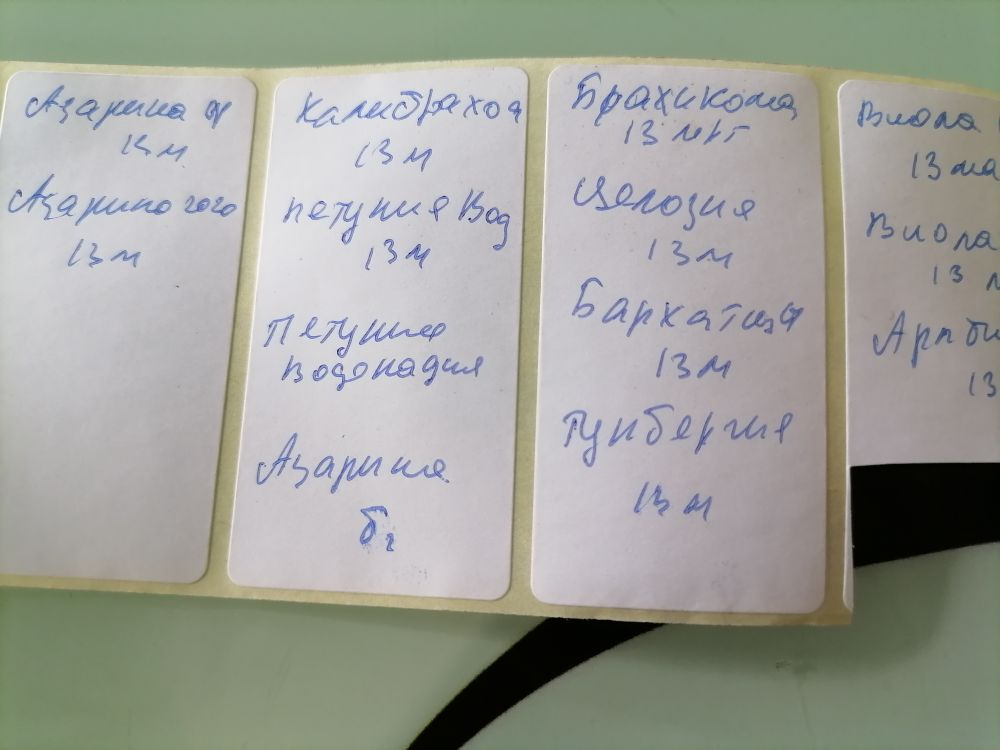 Азарина ф
13 м
Азарина гого
13 м
Калибрахоа
13 м
петуния Вод
13 м
Петуния
водопадия
Азарина
б г
Брахикома
13 мрт
Целозия
13 м
Бархатцы
13 м
Тунбергия
13 м
Виола
13 ма
Виола
13 м
13